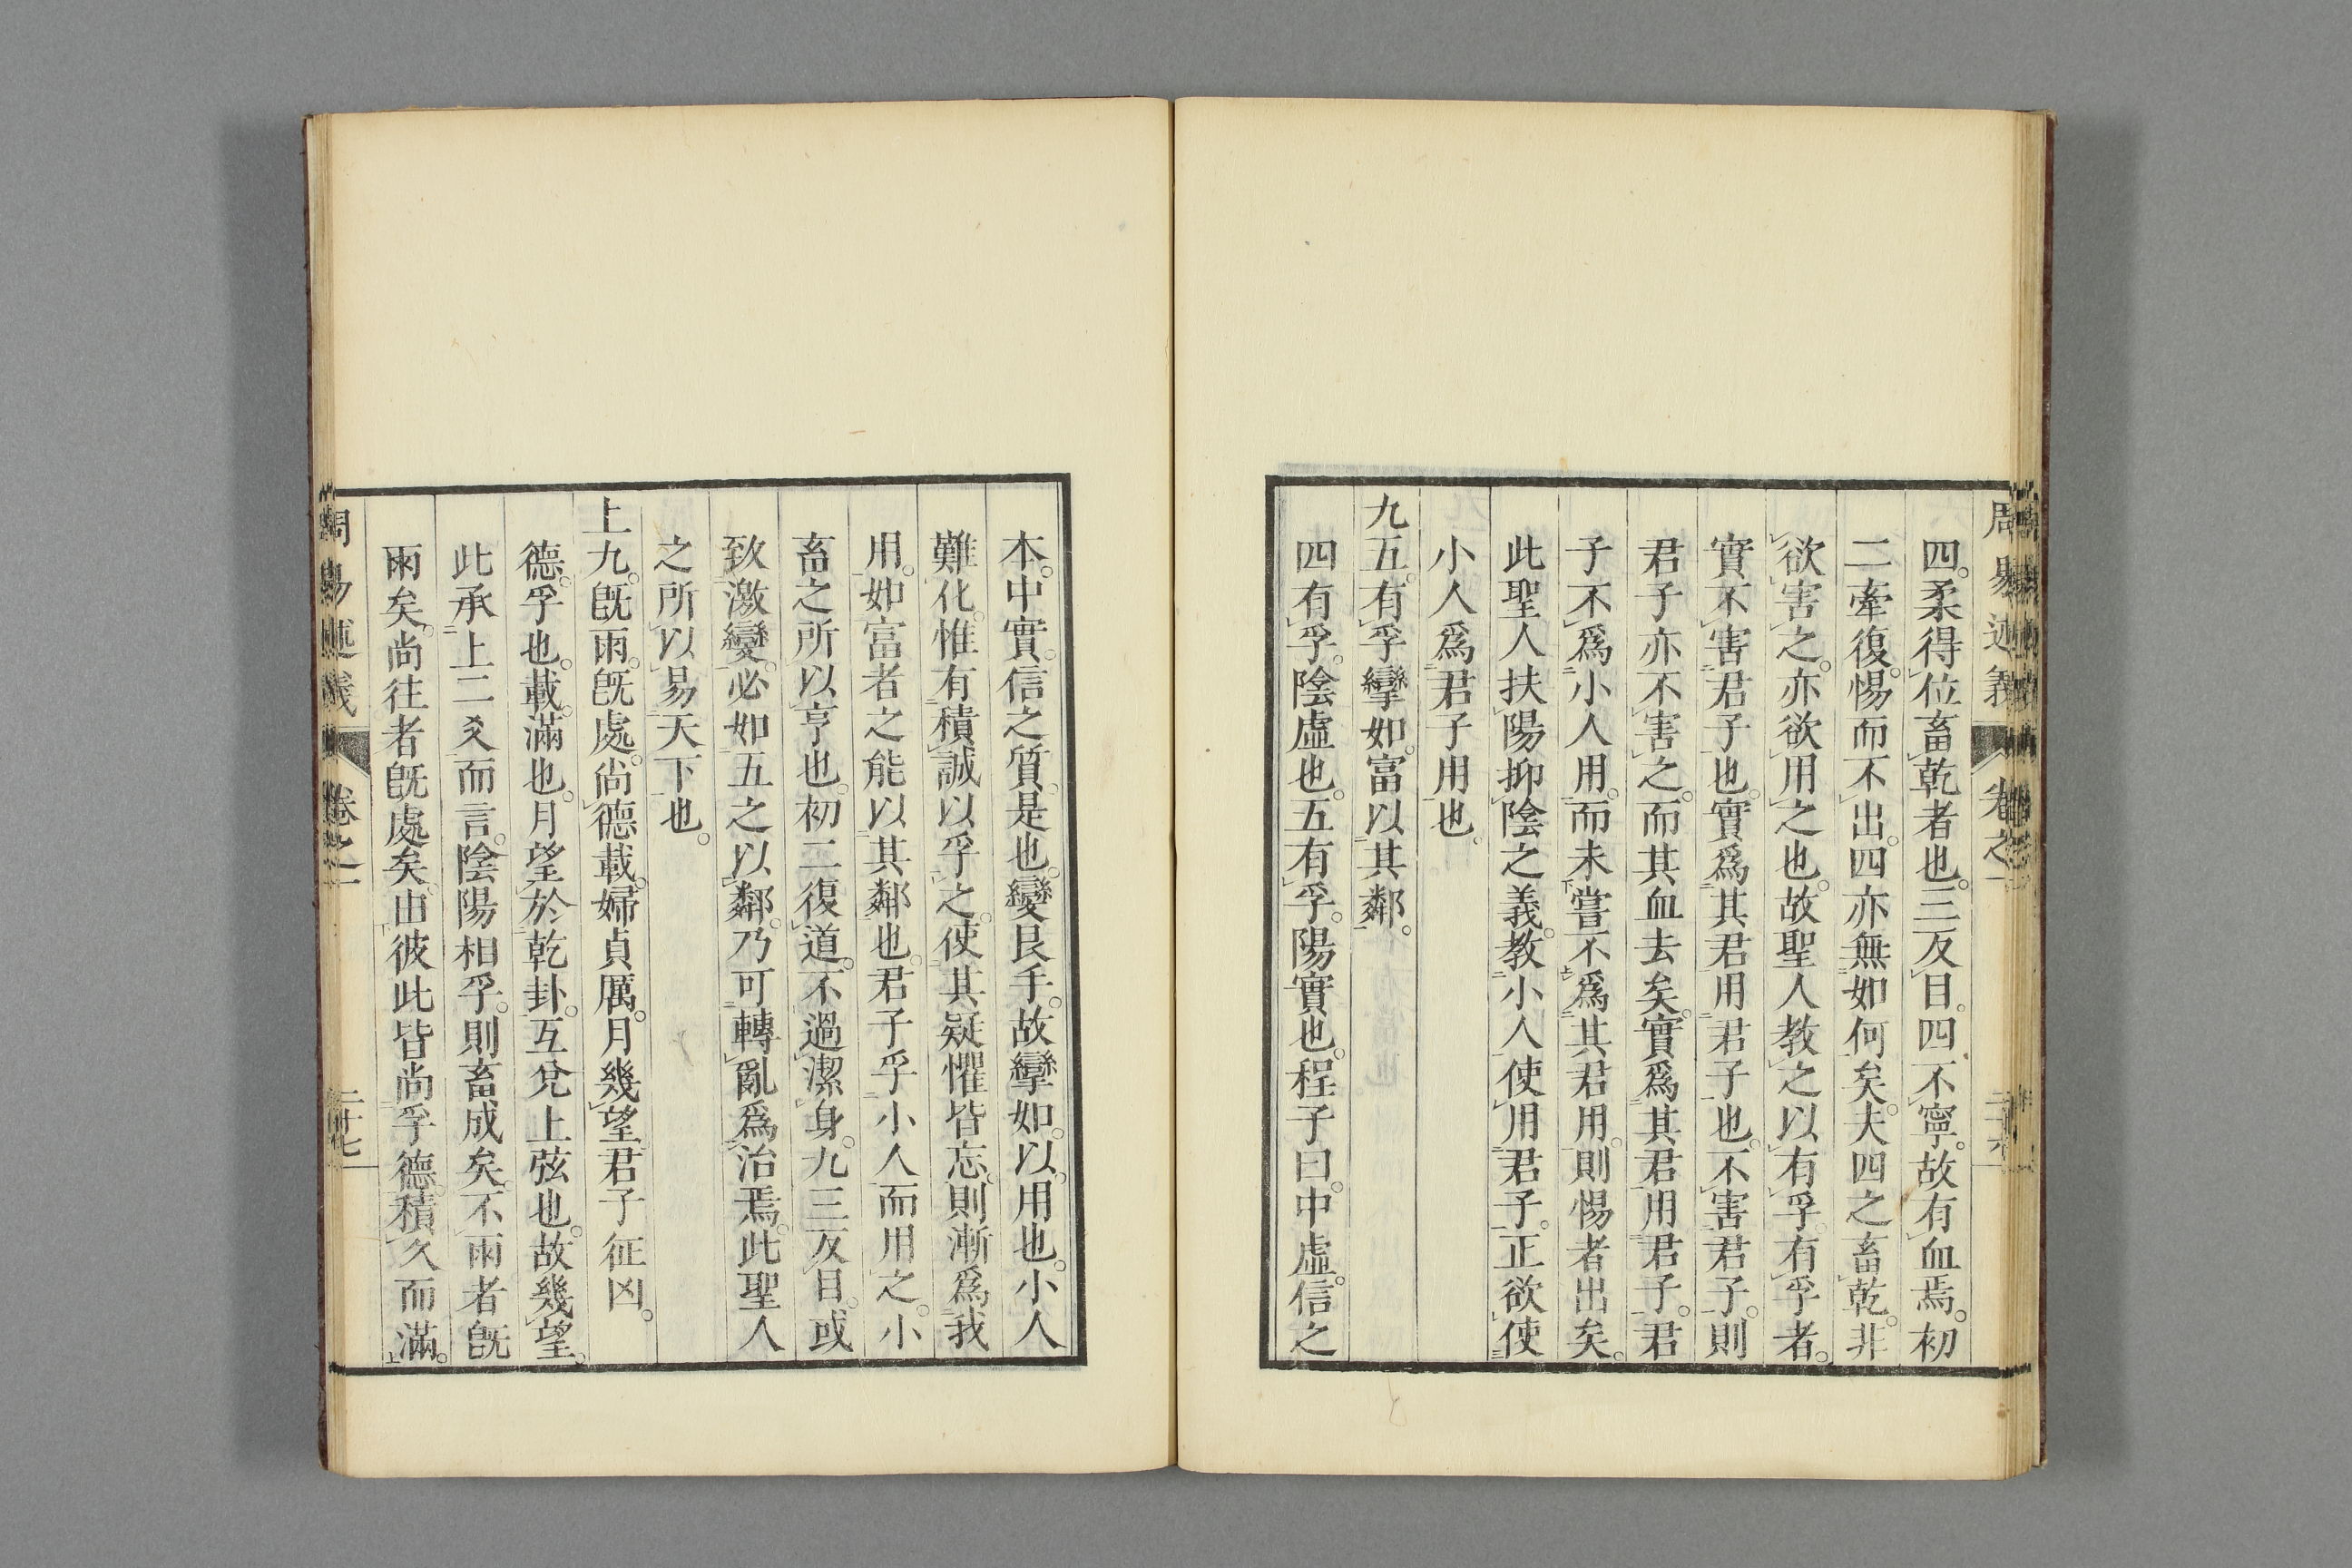 周易述義 卷之一
四。柔得位畜乾者也。三反目。四不寧。故有血焉。初
二牽復。惕而不出。四亦無如何矣。夫四之畜乾。非
欲害之。亦欲用之也。故聖人教之以有孚。有孚者。
實不害君子也。實爲其君用君子也。不害君子。則
君子亦不害之。而其血去矣。實爲其君用君子。君
子不爲小人用。而未嘗不爲其君用。則惕者出矣。
此聖人扶陽抑陰之義。教小人使用君子。正欲使
小人爲君子用也。
九五。有孚攣如。富以其鄰。
四有孚。陰虛也。五有孚。陽實也。程子曰。中虛。信之
本。中實。信之質。是也。變艮手。故攣如。以。用也。小人
難化。惟有積誠以孚之。使其疑懼皆忘。則漸爲我
用。如富者之能以其鄰也。君子孚小人而用之。小
畜之所以亨也。初二復道。不過潔身。九三反目。或
致激變。必如五之以鄰。乃可轉亂爲治焉。此聖人
之所以易天下也。
上九。旣雨。旣處。尚德載。婦貞厲。月幾望。君子征凶。
德。孚也。載。滿也。月望於乾卦。互兌上弦也。故幾望。
此承上二爻而言。陰陽相孚。則畜成矣。不雨者旣
雨矣。尚往者旣處矣。由彼此皆尚孚德。積久而滿。
周易述義 卷之一 二十七